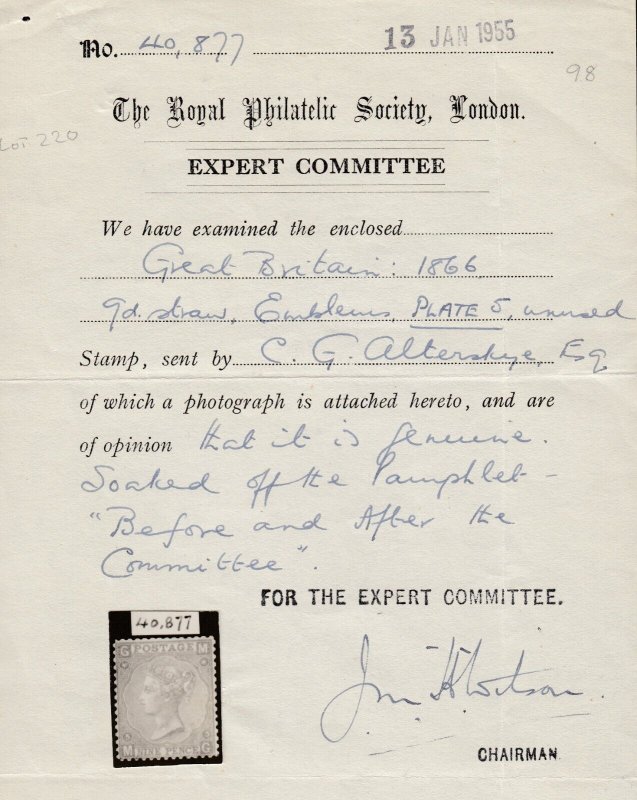 No. 40,877 13 JAN 1955
98
The Royal Philatelic Society, London.
Lot 220
EXPERT COMMITTEE
We have examined the enclosed
Great Britain: 1866
9d. straw, Emblems, PLATE 5, unused
Stamp, sent by C. G. Alterskye, Esq
of which a photograph is attached hereto, and are
of opinion that it is genuine.
Soaked off the Pamphlet-
"Before and After the
Committee".
FOR THE EXPERT COMMITTEE.
40,877
G POSTAGE M
M NINE PENCE G
CHAIRMAN